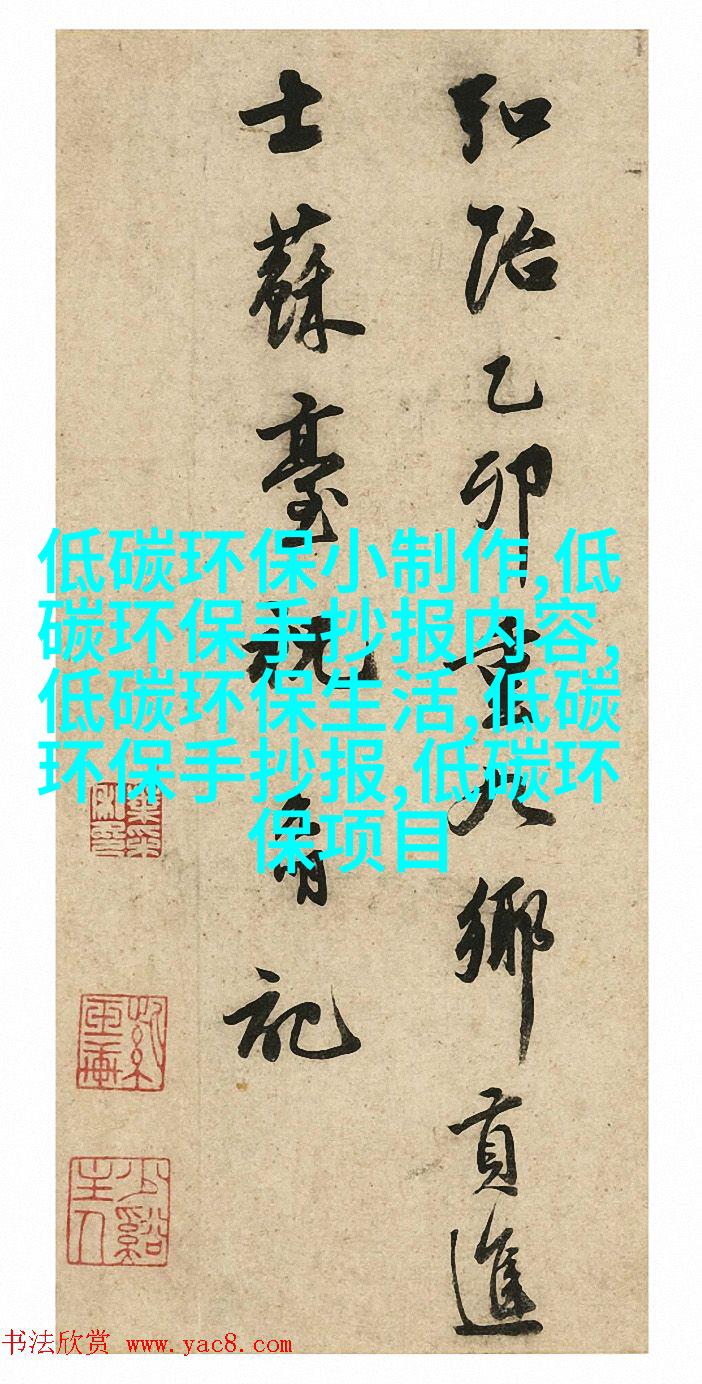 弘治乙卯重九鄉貢進
士蘇臺祝記
低碳环保小制作,低
碳环保手抄报内容,
低碳环保生活,低碳
环保手抄报,低碳环
保项目
少谿
主人
书法欣赏 www.yac8.com